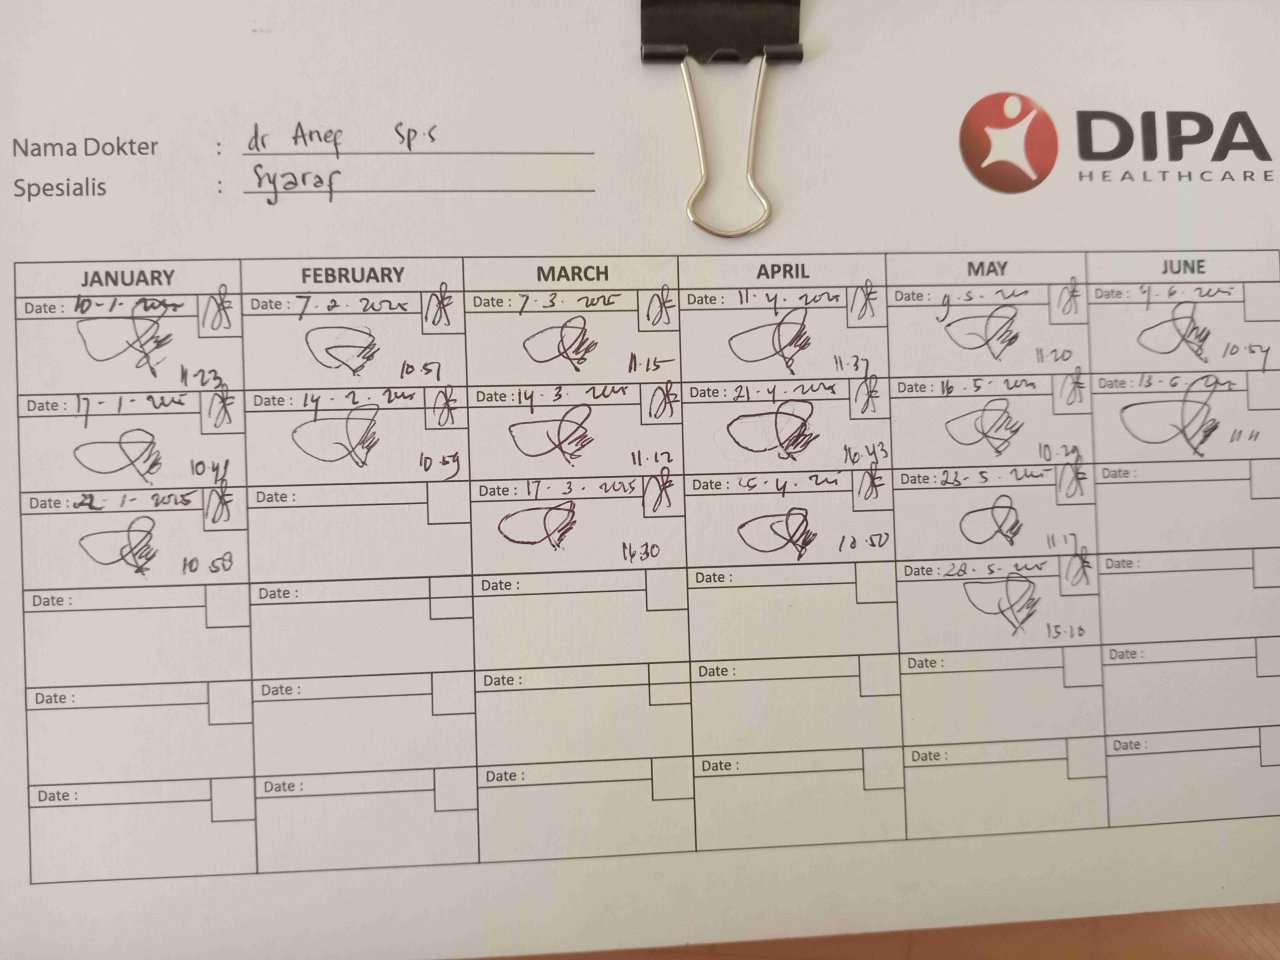 DIPA
HEALTHCARE
Nama Dokter : dr Anef Sp.S
Spesialis : Syaraf
JANUARY FEBRUARY MARCH APRIL MAY JUNE
Date : 10-1-2025 Date : 7-2-2025 Date : 7-3-2025 Date : 11-4-2025 Date : 9-5-2025 Date : 4-6-2025
11.23 10.51 11.15 11.37 11.20 10.54
Date : 17-1-2025 Date : 14-2-2025 Date : 14-3-2025 Date : 21-4-2025 Date : 16-5-2025 Date : 13-6-2025
10.59 11.12 16.43 10.29 11.11
Date : 22-1-2025 Date : Date : 17-3-2025 Date : 25-4-2025 Date : 23-5-2025 Date :
10.58 16.30 10.50 11.17
Date : Date : Date : Date : Date : 28-5-2025 Date :
15.10
Date : Date : Date : Date : Date : Date :
Date : Date : Date : Date : Date : Date :